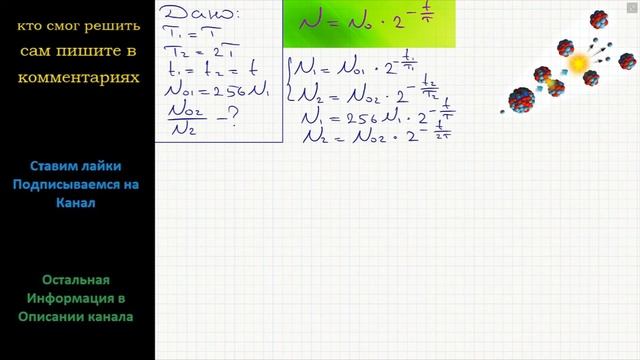 кто смог решить
сам пишите в
комментариях
Ставим лайки
Подписываемся на
Канал
Остальная
Информация в
Описании канала
Дано:
T₁ = T
T₂ = 2T
t₁ = t₂ = t
N₀₁ = 256N₁
N₀₂/N₂ - ?
N = N₀ · 2^(-t/T)
N₁ = N₀₁ · 2^(-t₁/T₁)
N₂ = N₀₂ · 2^(-t₂/T₂)
N₁ = 256N₁ · 2^(-t/T)
N₂ = N₀₂ · 2^(-t/2T)